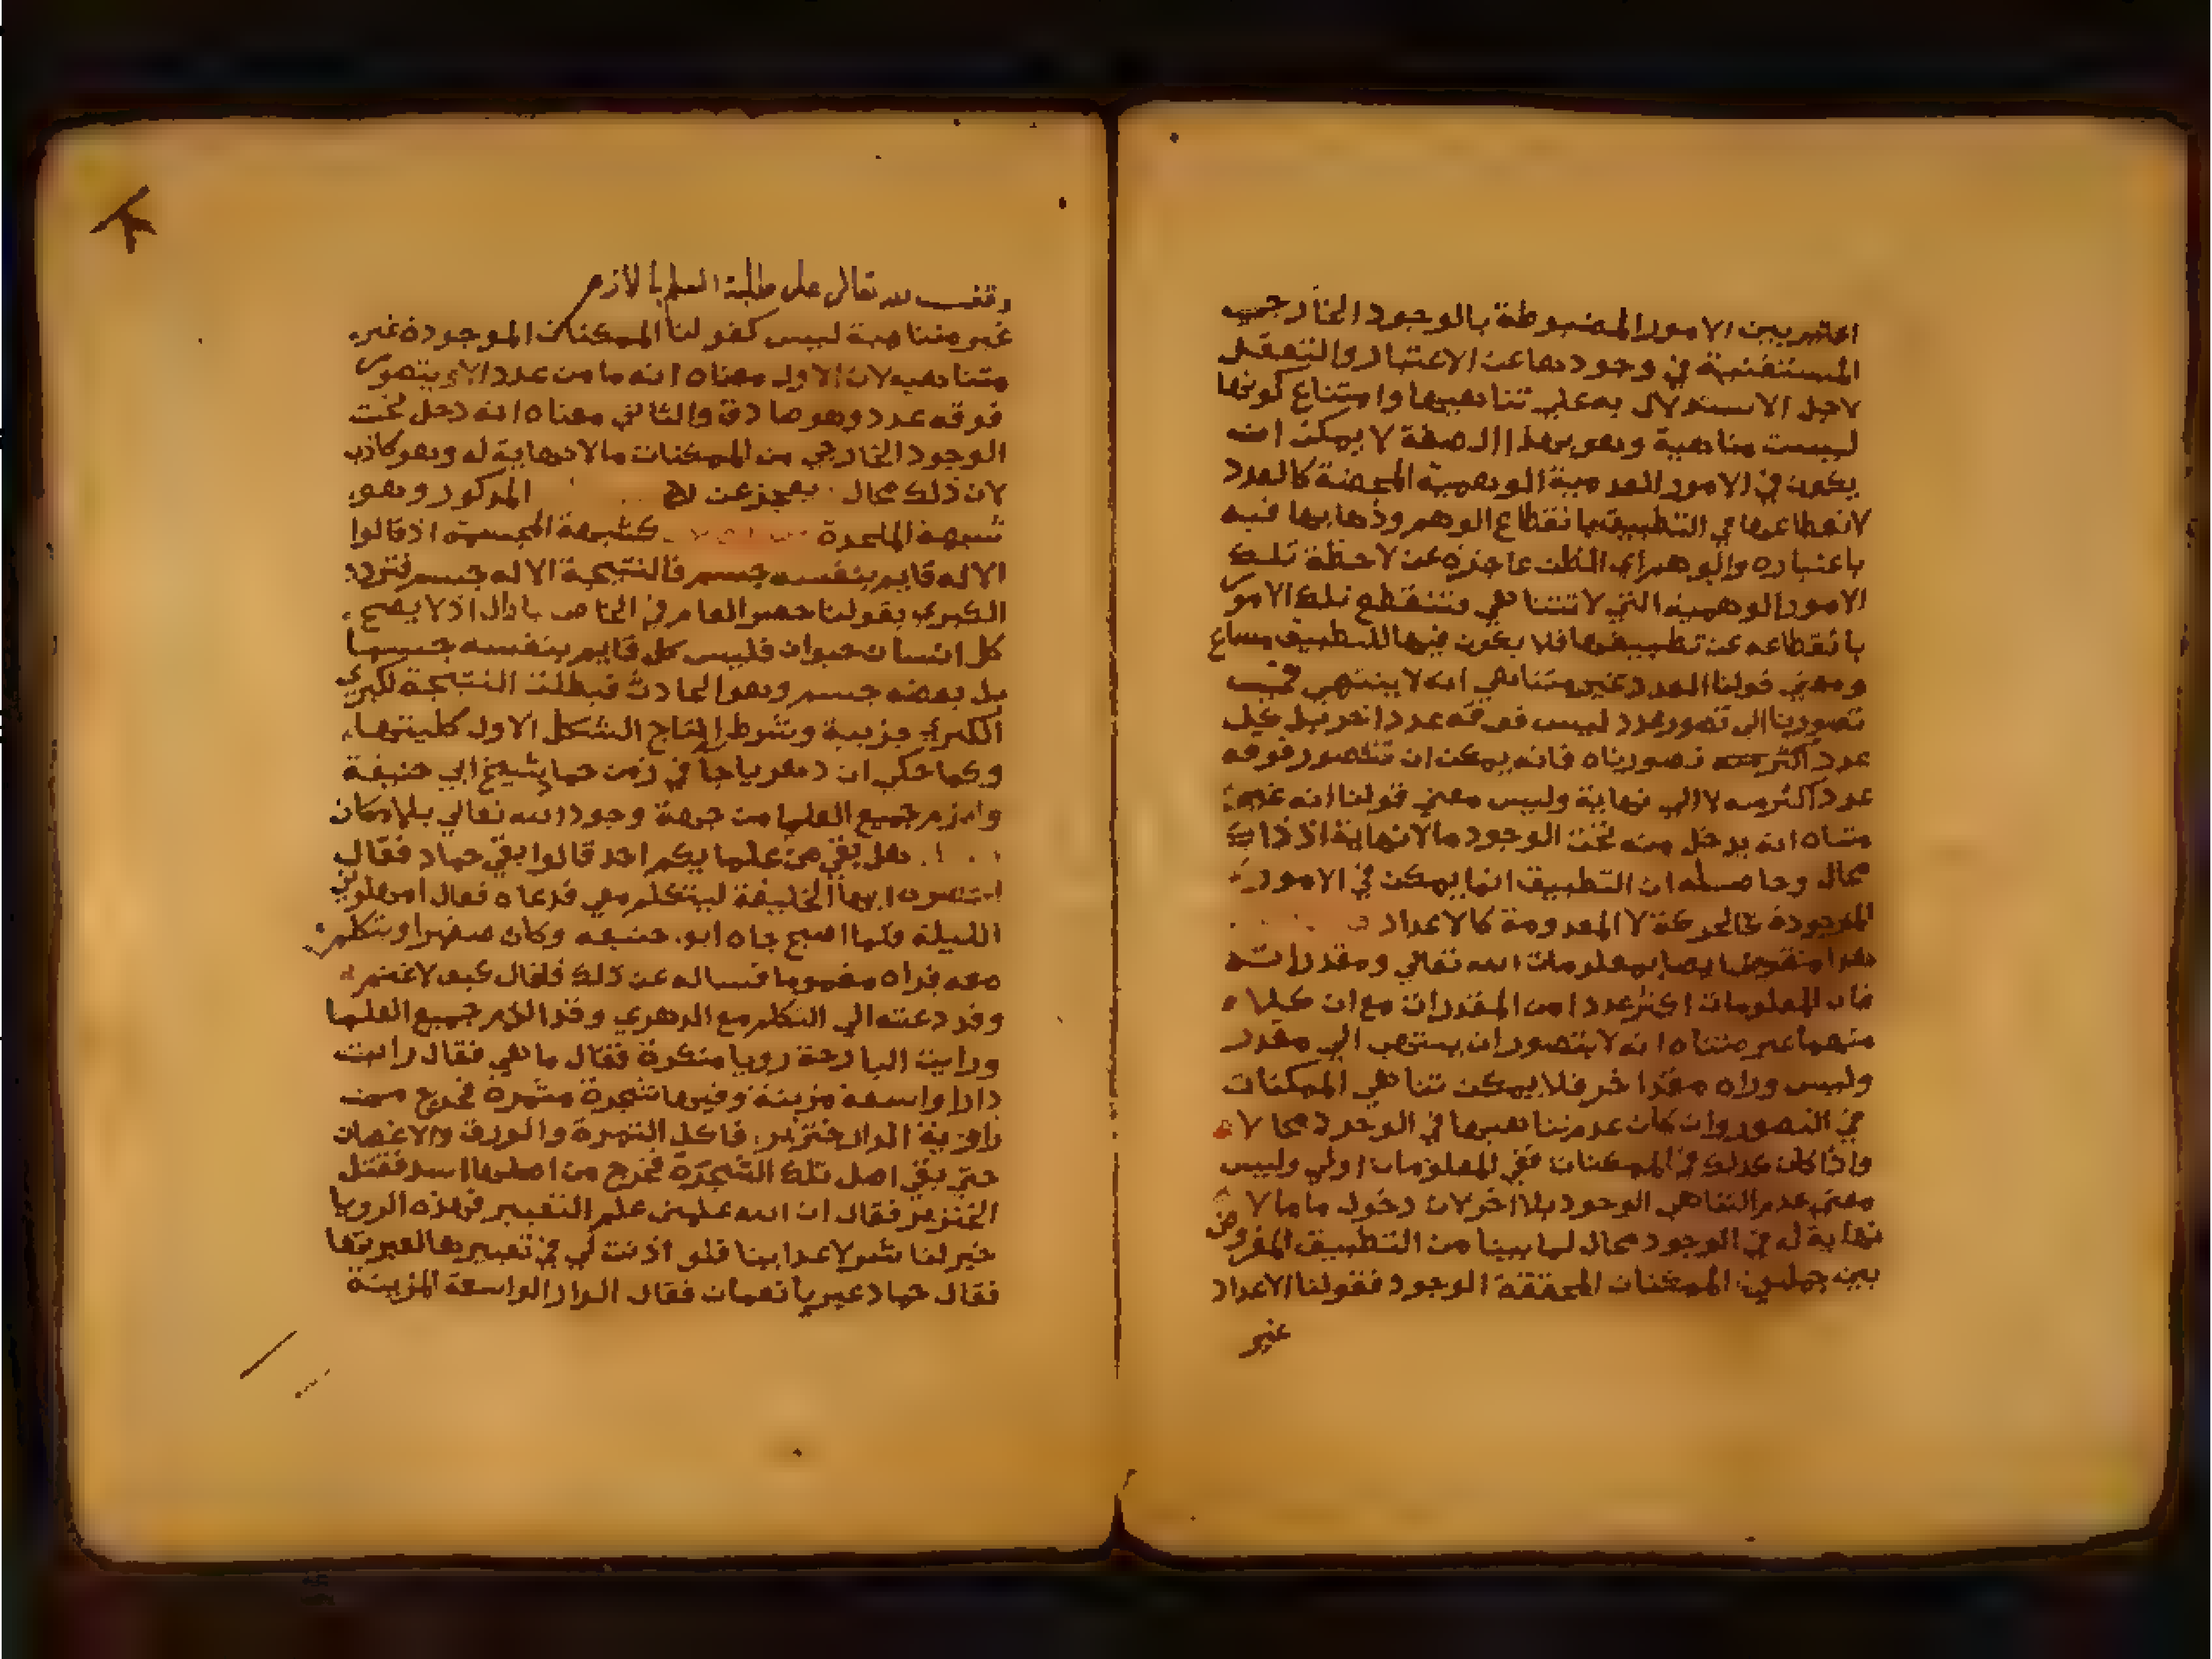 اعتبر بين الامور المضبوطة بالوجود الخارجي
المستغنية في وجودها عن الاعتبار والتعقل
لاجل الاستدلال به علي تناهيها وامتناع كونها
ليست متناهية وهو بهذا الصفة لا يمكن انه
يكون في الامور العدمية الوهمية المحضة كالعدد
لانقطاعها في التطبيق بانقطاع الوهم وذهابها فيه
باعتباره والوهم اي الظن عاجز عن لاحظة تلك
الامور الوهمية التي لا تتناهي وتنقطع تلك الامور
بانقطاعه عن تطبيقها فلا يكون فيها للتطبيق مساغ
ومعني قولنا العدد غير متناهي انه لا ينتهي في
تصورنا الي تصور عدد ليس فوقه عدد اخر بل كل
عدد اكثر تصورناه فانه يمكن ان نتصور فوقه
عدد اكثر منه لا الي نهاية وليس معني قولنا انه غير
متناه انه يدخل منه تحت الوجود ما لا نهاية اذ ذاك
محال وحاصله ان التطبيق انما يمكن في الامور
الموجودة كالحركة لا المعدومة كالاعداد
هذا منقوض ايضا بمعلومات الله تعالي ومقدوراته
فان المعلومات اكثر عددا من المقدرات مع ان كلا
منهما غير متناه انه لا يتصور ان ينتهي الي مقدر
وليس وراه مقدر اخر فلا يمكن تناهي الممكنات
في التصور وان كان عدم تناهيها في الوجود محالا
واذا كان كذلك في الممكنات ففي المعلومات اولي وليس
معني عدم التناهي الوجود بلا اخر لان دخول ما لا
نهاية له في الوجود محال لما بينا من التطبيق المفروض
بين جملتين الممكنات المحققة الوجود فقولنا الاعداد
غير
وقف لله تعالى على طلبة العلم بالازهر
غير متناهية ليس كقولنا الممكنات الموجودة غير
متناهيه لان الاول معناه انه ما من عدد الا ويتصور
فوقه عدد وهو صادق والثاني معناه انه دخل تحت
الوجود الخارجي من الممكنات ما لا نهاية له وهو كاذب
لان ذلك محال يعجز عن المذكور وهو
شبهة الملحدة كشبهة المجسمة اذ قالوا
الاله قايم بنفسه جسم فالنتيجة الاله جسم فترد
الكبري بقولنا حصر العام في الخاص باطل اذ لا يصح
كل انسان حيوان فليس كل قايم بنفسه جسما
بل بعضه جسم وهو الحادث فبطلت النتيجة لكبري
الكبري جزيية وشرط انتاج الشكل الاول كليتها
وكما حكي ان دهريا جا في زمن حماد شيخ ابي حنيفة
والزم جميع العلما من جهة وجود الله تعالي بلا مكان
هل بقي من علمايكم احد قالوا بقي حماد فقال
احضره ايها الخليفة ليتكلم معي فدعاه فقال امهلوني
الليلة فلما اصبح جاه ابو حنيفه وكان صغيرا
معه فراه مغموما فساله عن ذلك فقال كيف لا اغتم
وقد دعيت الي التكلم مع الدهري وقد الزم جميع العلما
ورايت البارحة رويا منكرة فقال ما هي فقال رايت
دارا واسعة مزينة وفيها شجرة مثمرة فخرج من
زاوية الدار خنزير فاكل الثمرة والورق والاغصان
حتي بقي اصل تلك الشجرة فخرج من اصلها اسد فقتل
الخنزير فقال ان الله علمني علم التعبير فهذه الرويا
خير لنا شر لاعداينا فلو اذنت لي في تعبيرها لعبرتها
فقال حماد عبر يا نعمان فقال الدار الواسعة المزينة